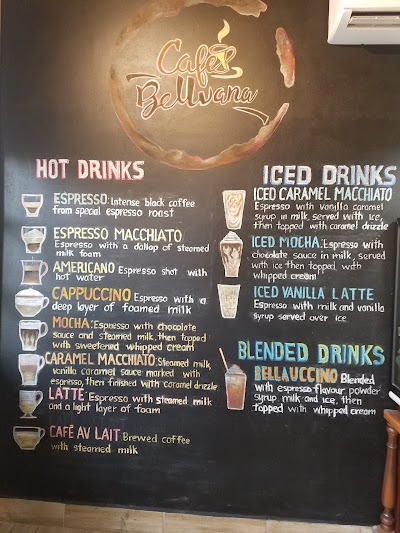 Café
Bellvana
HOT DRINKS
ESPRESSO: Intense black coffee
from special espresso roast
ESPRESSO MACCHIATO
Espresso with a dollop of steamed
milk foam
AMERICANO Espresso shot with
hot water
CAPPUCCINO Espresso with a
deep layer of foamed milk
MOCHA: Espresso with chocolate
sauce and steamed milk, then topped
with sweetened whipped cream
CARAMEL MACCHIATO: Steamed milk,
vanilla caramel sauce marked with
espresso, then finished with caramel drizzle
LATTE: Espresso with steamed milk
and a light layer of foam
CAFÉ AV LAIT: Brewed coffee
with steamed milk
ICED DRINKS
ICED CARAMEL MACCHIATO
Espresso with vanilla caramel
syrup in milk, served with ice,
then topped with caramel drizzle
ICED MOCHA: Espresso with
chocolate sauce in milk, served
with ice then topped with
whipped cream
ICED VANILLA LATTE
Espresso with milk and vanilla
syrup served over ice
BLENDED DRINKS
BELLAUCCINO Blended
with espresso flavour powder
syrup milk and ice, then
topped with whipped cream